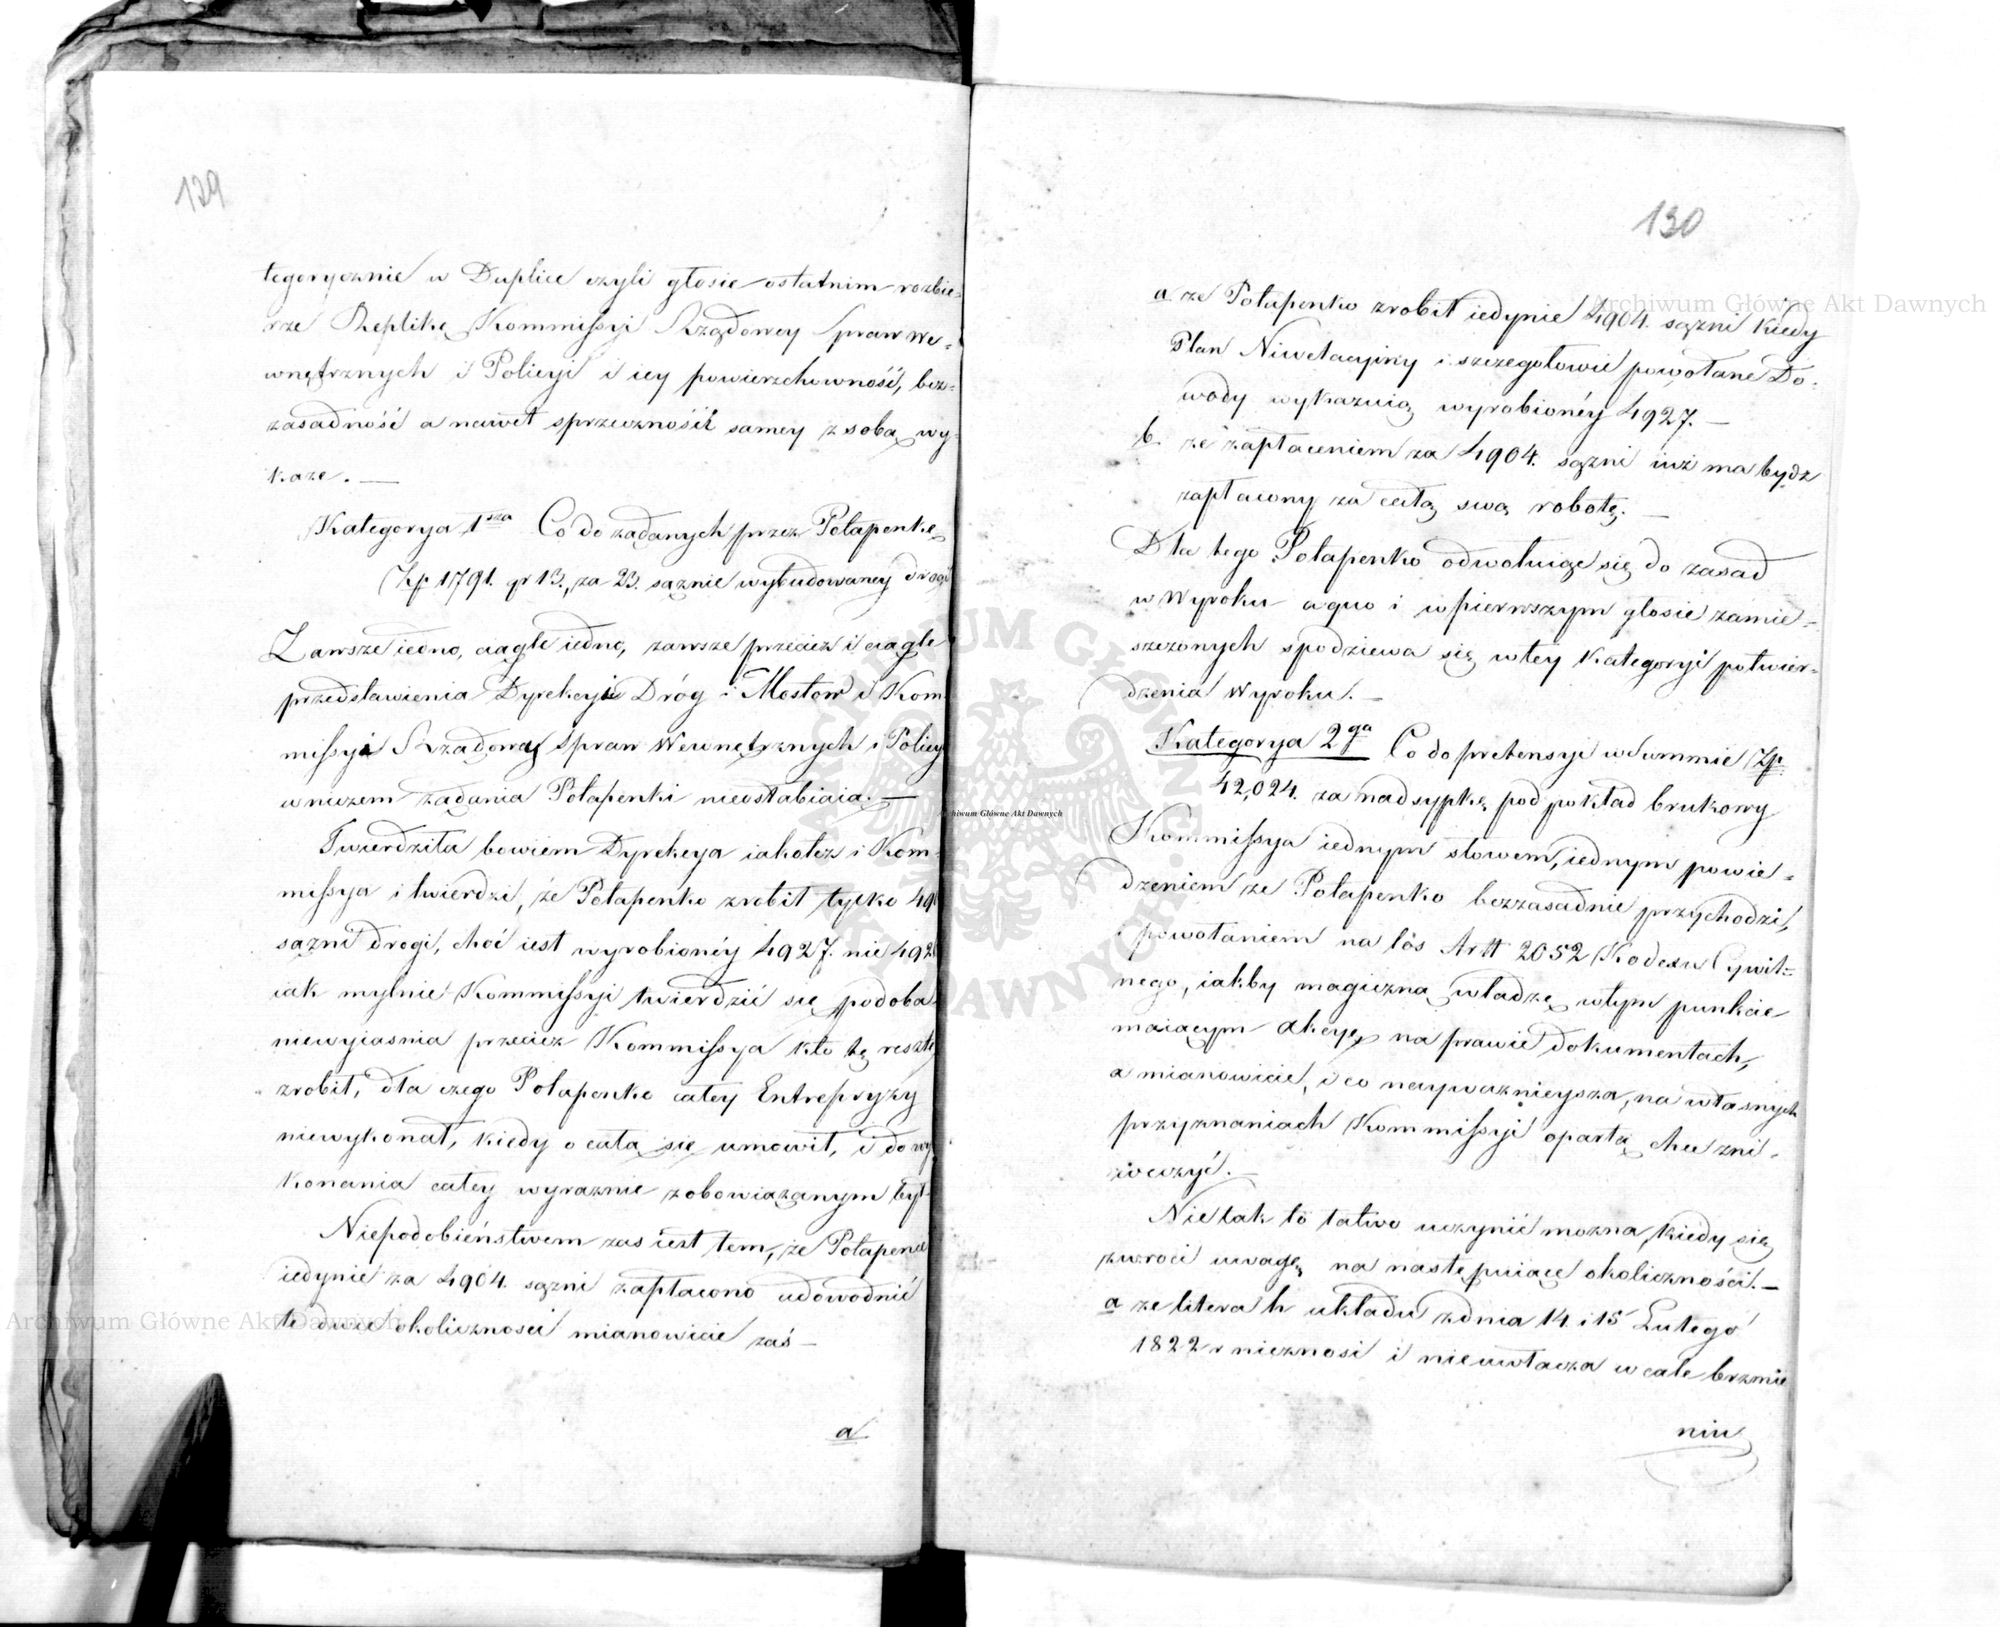 129
tegorycznie w Duplice czyli głosie ostatnim rozbie-
rze Replikę Kommissyi Rządowey Spraw We-
wnętrznych i Policyi i iey powierzchowność, bez-
zasadność a nawet sprzeczność samey z sobą wy-
każe. —
Kategorya 1sza Co do żądanych przez Potapenkę
Zp. 1791. gr 13., za 23. sążnie wybudowaney drogi
Zawsze iedno, ciągle iedno, zawsze przecież i ciągle
przedstawienia Dyrekcyi Dróg i Mostow i Kom-
missyi Rządowey Spraw Wewnętrznych i Policyi
w niczem żądania Potapenki nieosłabiaią. —
Twierdziła bowiem Dyrekcya iakoteż i Kom-
missya i twierdzi, że Potapenko zrobił tylko 490
sążni drogi, choć iest wyrobionéy 4927. nie 492
iak mylnie Kommissyi twierdzić się podoba
niewyiasnia przecież Kommissya kto tę resztę
zrobił, dla czego Potapenko całey Entrepryzy
niewykonał, kiedy o całą się umowił, i do wy
konania całey wyraznie zobowiązanym był
Niepodobieństwem zas iest tem, że Potapence
iedynie za 4904. sążni zapłacono udowodnić
te dwie okoliczności mianowicie zaś —
a
130
a że Potapenko zrobił iedynie 4904. sążni kiedy
Plan Niwelacyiny i szczegołowie powołane Do-
wody wykazuią wyrobionéy 4927. —
b. że zapłaceniem za 4904. sążni iuż ma bydż
zapłacony za całą swą robotę. —
Dla tego Potapenko odwołuiąc się do zasad
w Wyroku a quo i w pierwszym głosie zamie-
szczonych spodziewa się w tey Kategoryi potwier-
dzenia Wyroku. —
Kategorya 2ga Co do pretensyi w Summie Zp.
42,024. za nadsypkę pod pokład brukowy
Kommissya iednym słowem, iednym powie-
dzeniem że Potapenko bezzasadnie przychodzi,
powołaniem na łos Artt 2052 Kodexu Cywil-
nego, iakby magiczną władzę w tym punkcie
maiącym Akcyę na prawie dokumentach,
a mianowicie, i co nayważnieysza, na własnych
przyznaniach Kommissyi opartą chce zni-
weczyć. —
Nie tak to łatwo uczynić można, kiedy się
zwroci uwagę na następuiące okoliczności. —
a że litera h układu z dnia 14. i 15 Lutego
1822 r nieznosi i nieuwłacza w cale brzmie
niu
ARCHIWUM GŁÓWNE AKT DAWNYCH
Archiwum Główne Akt Dawnych
Archiwum Główne Akt Dawnych
Archiwum Główne Akt Dawnych